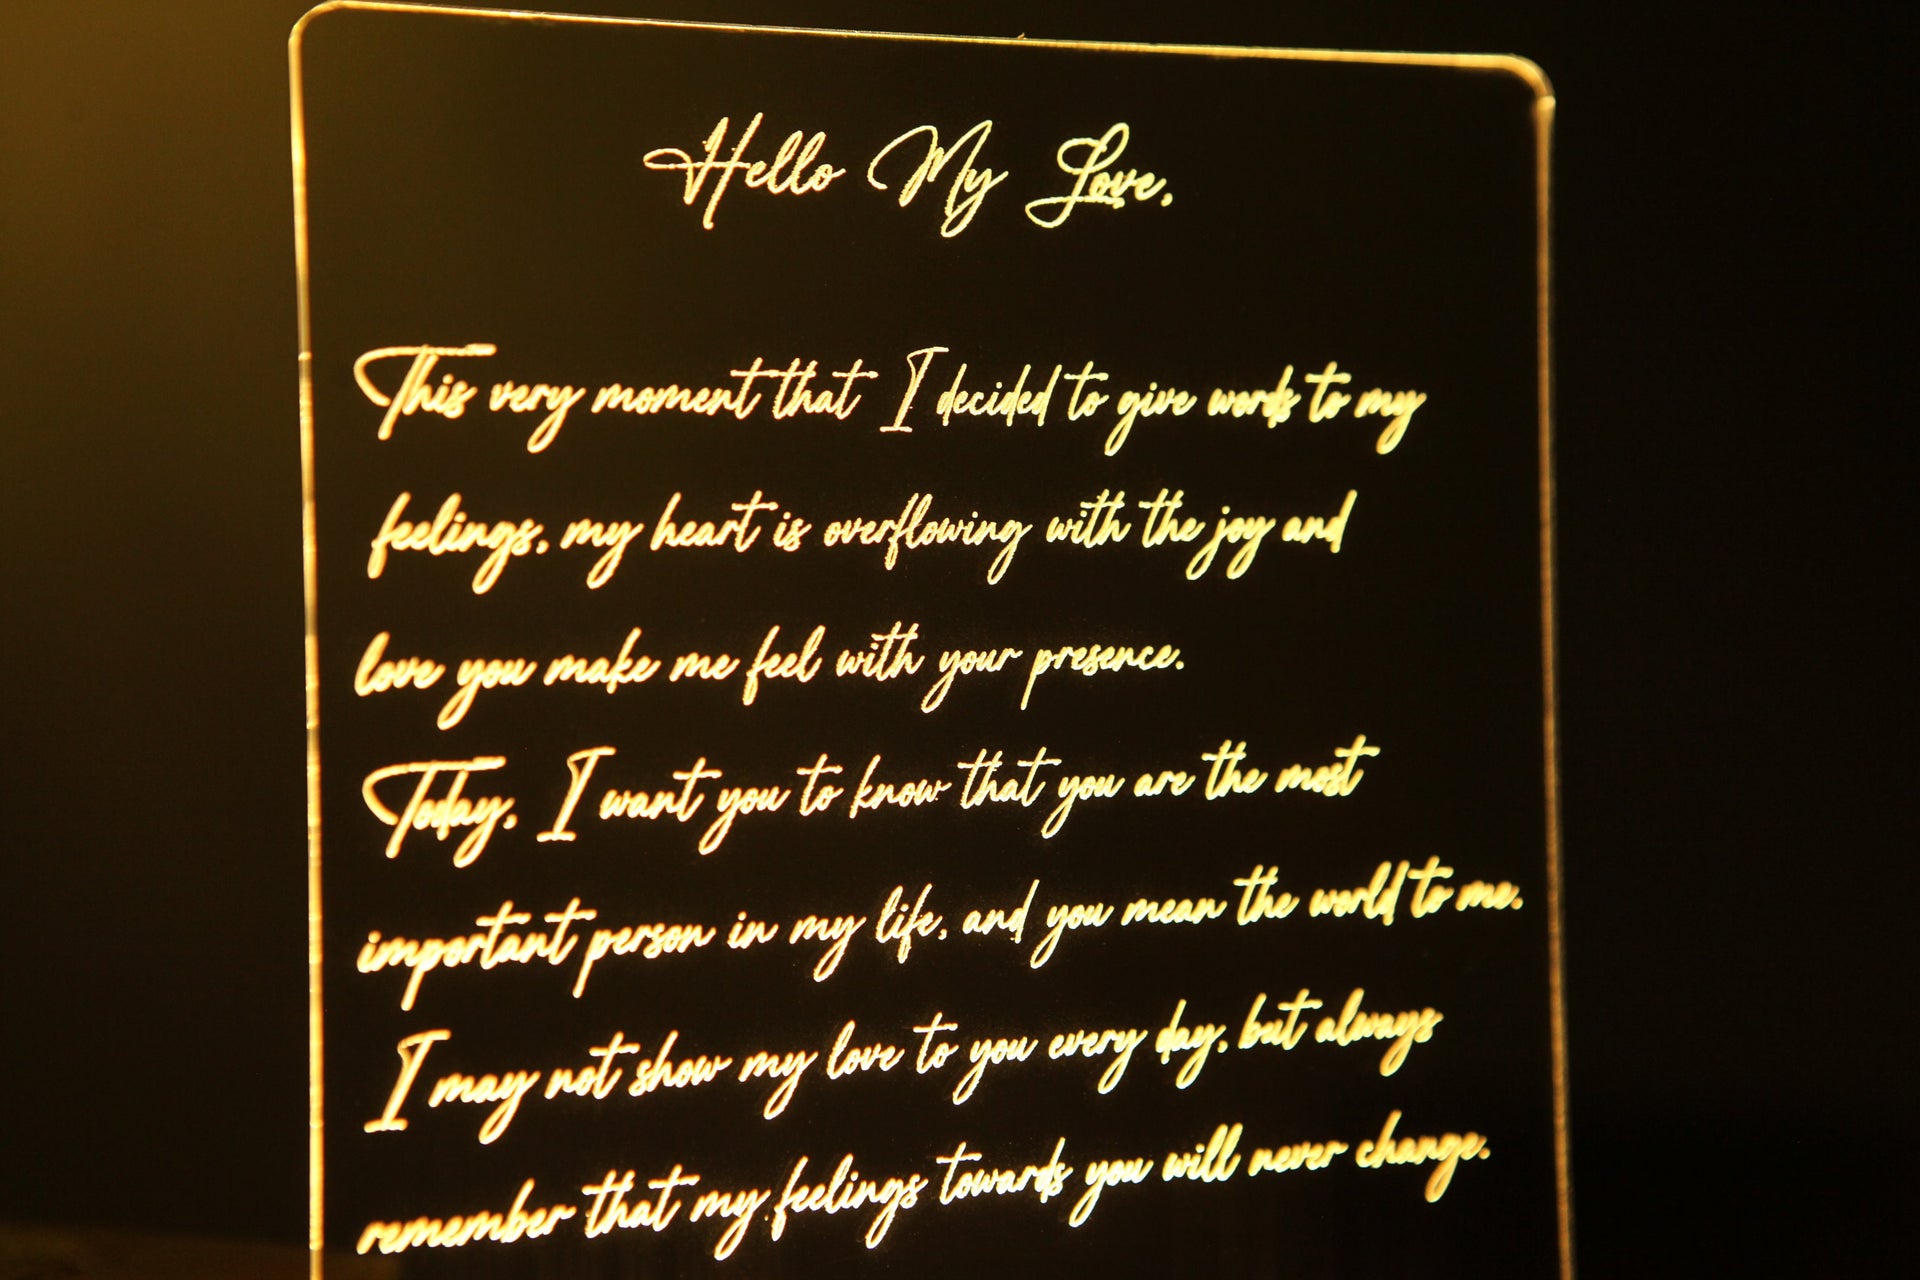 Hello My Love,
This very moment that I decided to give words to my
feelings, my heart is overflowing with the joy and
love you make me feel with your presence.
Today, I want you to know that you are the most
important person in my life, and you mean the world to me.
I may not show my love to you every day, but always
remember that my feelings towards you will never change.